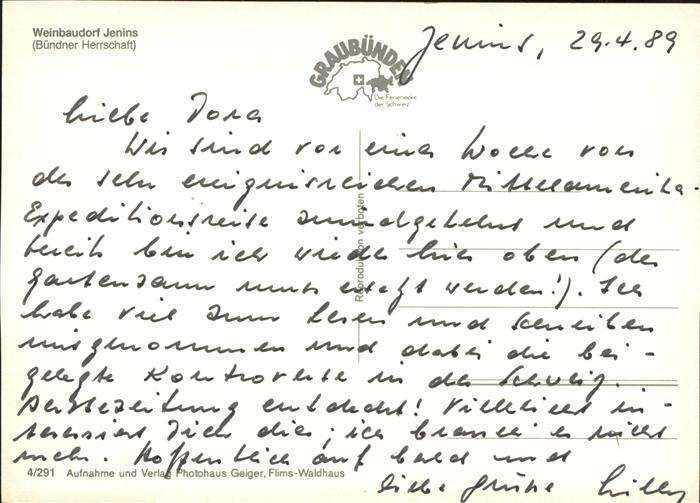 Weinbaudorf Jenins
(Bündner Herrschaft)
GRAUBÜNDEN
Die Ferienecke
der Schweiz
Jenins, 29.4.89
Liebe Dora
Wir sind vor einer Woche von
der sehr ereignisreichen Mittelamerika-
Expeditionsreise zurückgekehrt und
bereits bin ich wieder hier oben (der
Gartenzaun muss ersetzt werden!). Ich
habe viel zum Lesen und Schreiben
mitgenommen und dabei die bei-
gelegte Kontroverse in der Schweiz.
Ärztezeitung entdeckt! Vielleicht in-
teressiert Dich dies; ich brauche es nicht
mehr. Hoffentlich auf bald und
liebe Grüsse
Reproduktion verboten
4/291 Aufnahme und Verlag Photohaus Geiger, Flims-Waldhaus